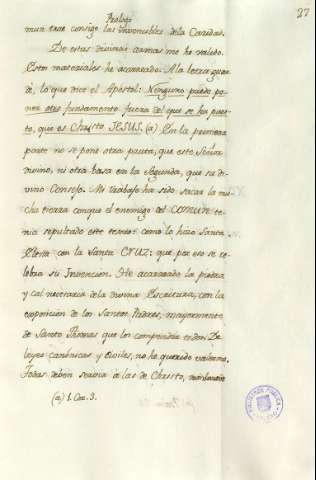 Prologo
27
mun trae consigo las invencibles de la Caridad.
De estas divinas armas me he valido.
Estos materiales he acarreado. A la letra guar-
dè, lo que dice el Apostol: Ninguno puede po-
ner otro fundamento fuera del que se ha pues-
to, que es Christo JESUS. (a) En la primera
parte no se pone otra pauta, que este Señor
divino, ni otra basa en la segunda, que su di-
vino Consejo. Mi trabajo ha sido sacar la mu-
cha tierra conque el enemigo del COMUN te-
nia sepultado este tesoro: como lo hizo Santa
Elena con la Santa CRUZ: que por eso se ce-
lebra su Invencion. He acarreado la piedra
y cal necesaria de la divina Escritura, con la
exposicion de los Santos Padres, mayormente
de Santo Thomas que los comprendiò todos. De
leyes canónicas y civiles, no he querido valerme.
Todas deben servir à las de Christo,
(a) 1. Cor. 3.
BIBLIOTECA PUBLICA